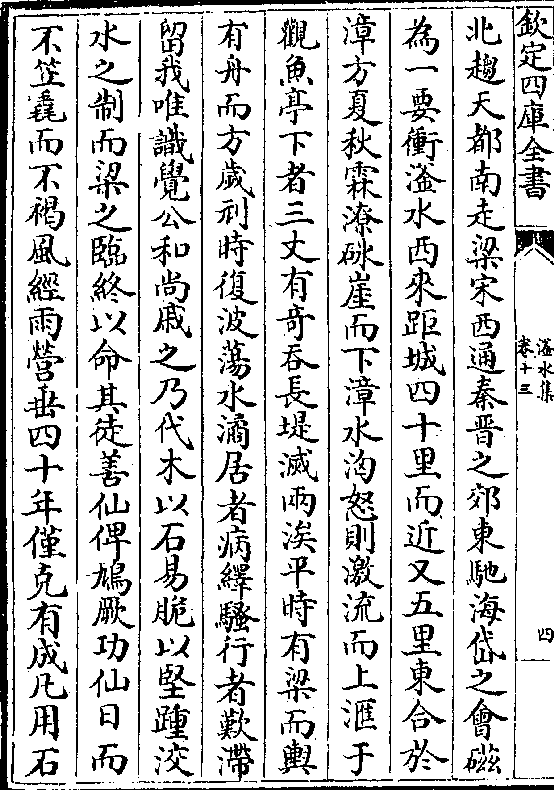 欽定四庫全書
滏水集
卷十三
四
北趨天都南走梁宋西通秦晉之郊東馳海岱之會磁
為一要衝滏水西來距城四十里而近又五里東合於
漳方夏秋霖潦砅崖而下漳水洶怒則激流而上滙于
觀魚亭下者三丈有奇吞長堤滅兩涘平時有梁而輿
有舟而方歲利時復波蕩水潏居者病繹騷行者歎滯
留我唯識覺公和尚戚之乃代木以石易脆以堅踵洨
水之制而梁之臨終以命其徒善仙俾鳩厥功仙日而
不笠毳而不褐風經雨營垂四十年僅克有成凡用石